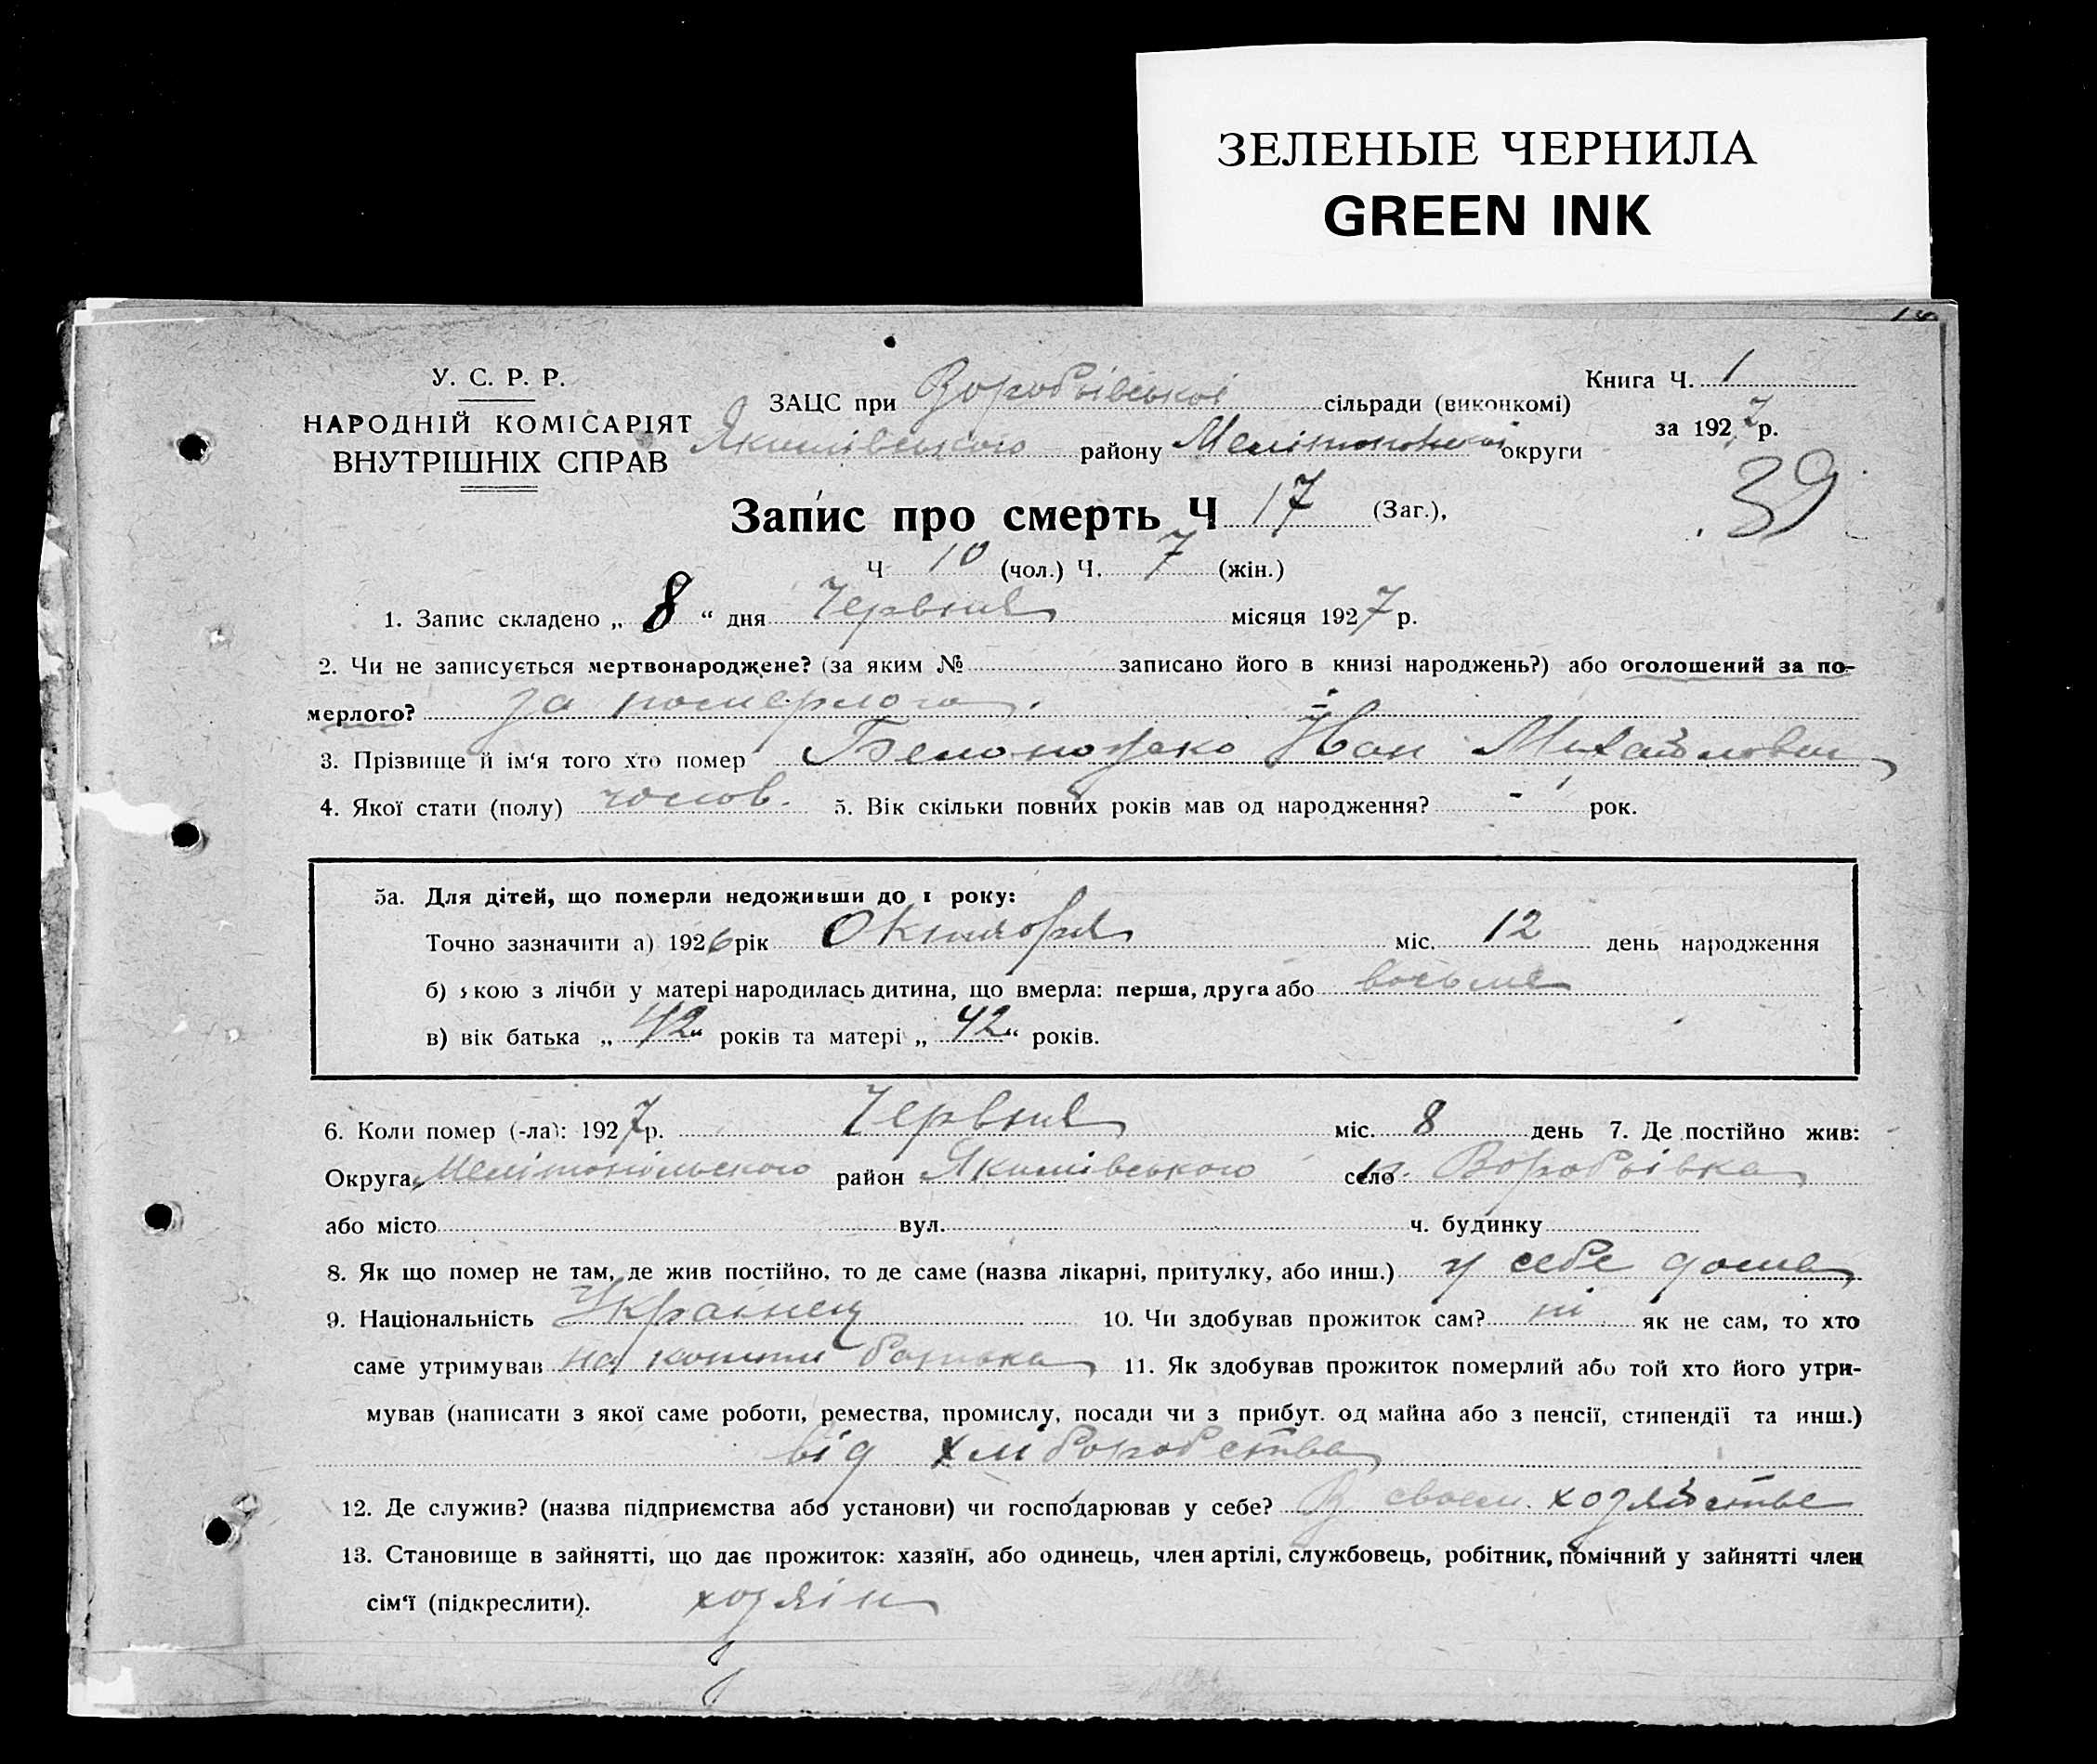 ЗЕЛЕНЫЕ ЧЕРНИЛА
GREEN INK
У. С. Р. Р.
НАРОДНІЙ КОМІСАРІЯТ
ВНУТРІШНІХ СПРАВ
ЗАЦС при Воробьівської сільради (виконкомі)
Якимівського району Мелітопольської округи
Книга Ч. 1
за 1927 р.
39
Запис про смерть Ч 17 (Заг.),
Ч 10 (чол.) Ч. 7 (жін.)
1. Запис складено „ 8 “ дня Червня місяця 1927 р.
2. Чи не записується мертвонароджене? (за яким № записано його в книзі народжень?) або оголошений за по-
мерлого? за померлого.
3. Прізвище й ім'я того хто помер Белоножко Іван Михайлович
4. Якої стати (полу) чолов. 5. Вік скільки повних років мав од народження? - рок.
5а. Для дітей, що померли недоживши до 1 року:
Точно зазначити а) 1926 рік Октября міс. 12 день народження
б) якою з лічби у матері народилась дитина, що вмерла: перша, друга або восьме
в) вік батька „ 42 “ років та матері „ 42 “ років.
6. Коли помер (-ла): 1927 р. Червня міс. 8 день 7. Де постійно жив:
Округа Мелітопольского район Якимівського село Воробьівка
або місто вул. ч. будинку
8. Як що помер не там, де жив постійно, то де саме (назва лікарні, притулку, або инш.) у себе дома
9. Національність Украінец 10. Чи здобував прожиток сам? ні як не сам, то хто
саме утримував на кошти батька 11. Як здобував прожиток померлий або той хто його утри-
мував (написати з якої саме роботи, ремества, промислу, посади чи з прибут. од майна або з пенсії, стипендії та инш.)
від хліборобства
12. Де служив? (назва підприємства або установи) чи господарював у себе? В своем хозяйстве
13. Становище в зайнятті, що дає прожиток: хазяїн, або одинець, член артілі, службовець, робітник, помічний у зайнятті член
сім'ї (підкреслити). хозяін